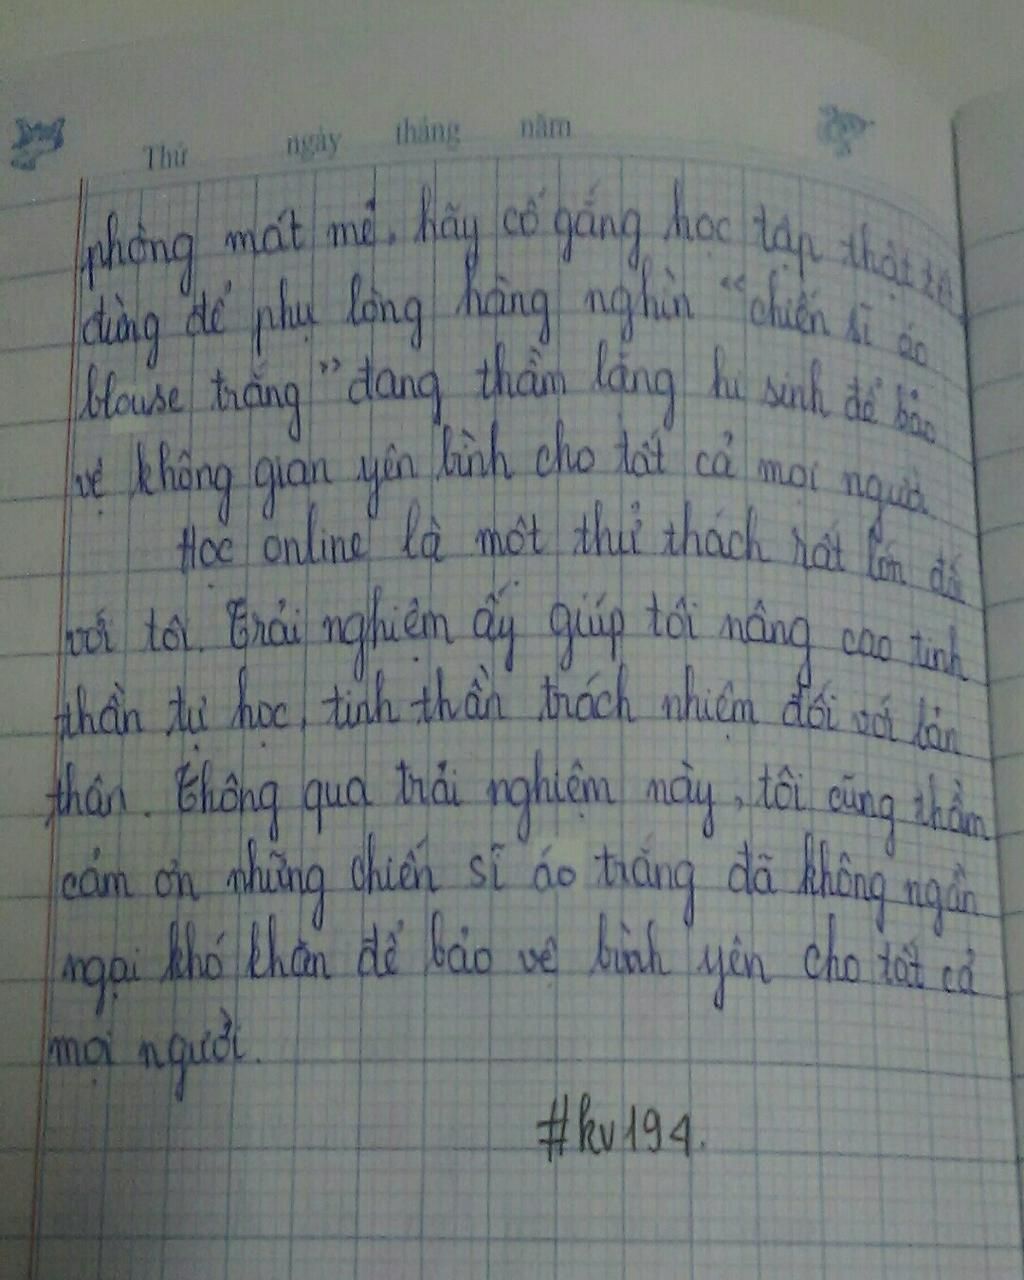 Thứ ngày tháng năm
phòng mát mẻ, hãy cố gắng học tập thật tốt
đừng để phụ lòng hàng nghìn "chiến sĩ áo
blouse trắng" đang thầm lặng hi sinh để bảo
vệ không gian yên bình cho tất cả mọi người.
Học online là một thử thách rất lớn đối
với tôi. Trải nghiệm ấy giúp tôi nâng cao tinh
thần tự học, tinh thần trách nhiệm đối với bản
thân. Thông qua trải nghiệm này, tôi cũng thầm
cảm ơn những chiến sĩ áo trắng đã không ngần
ngại khó khăn để bảo vệ bình yên cho tất cả
mọi người.
#kv194.